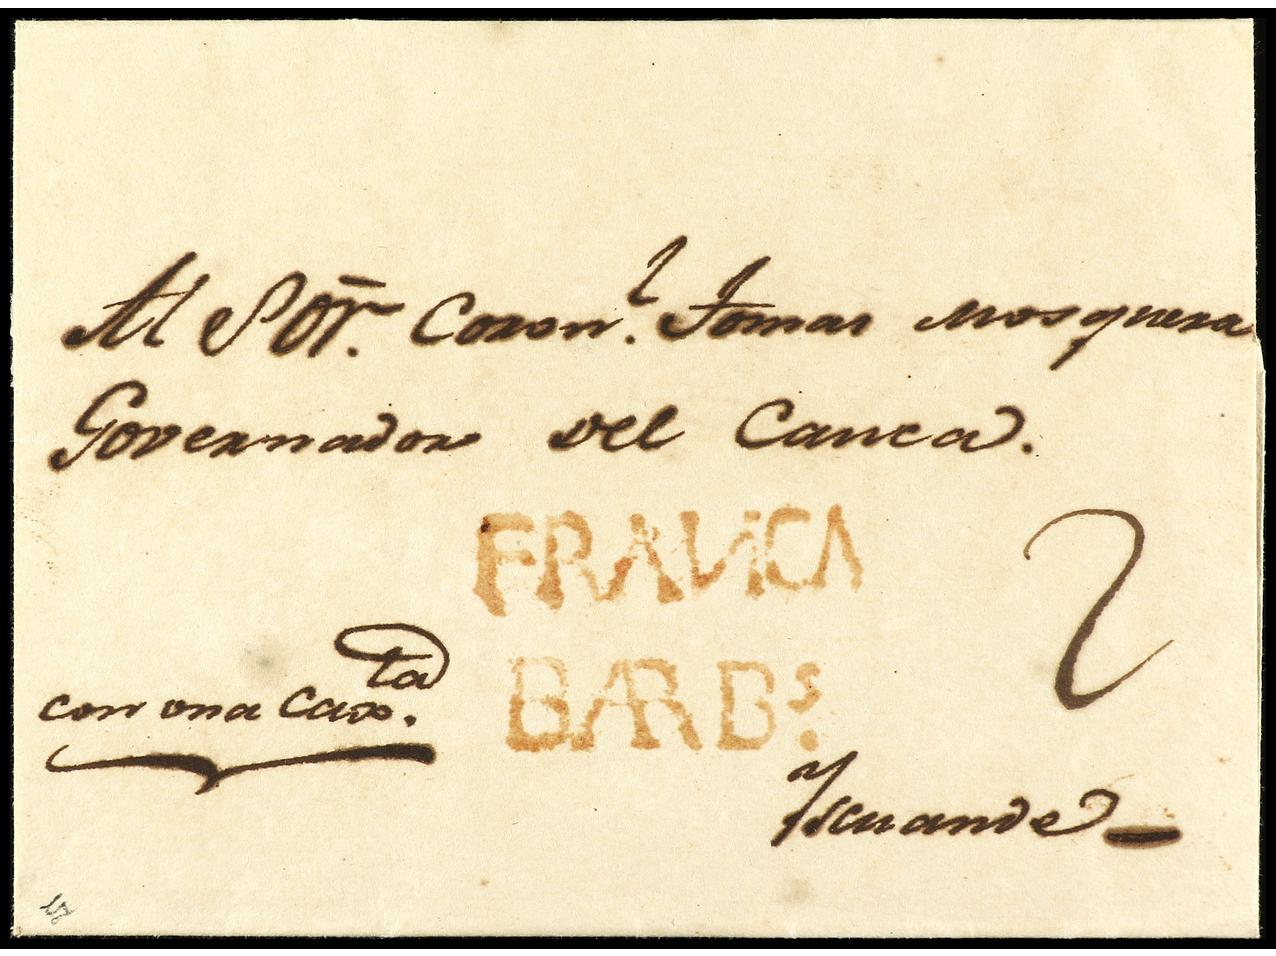 Al Sōr. Coron.l Tomas Mosquera
Governador del Cauca.
FRANCA
2
con una Car.ta
BARB.s
Yscuande